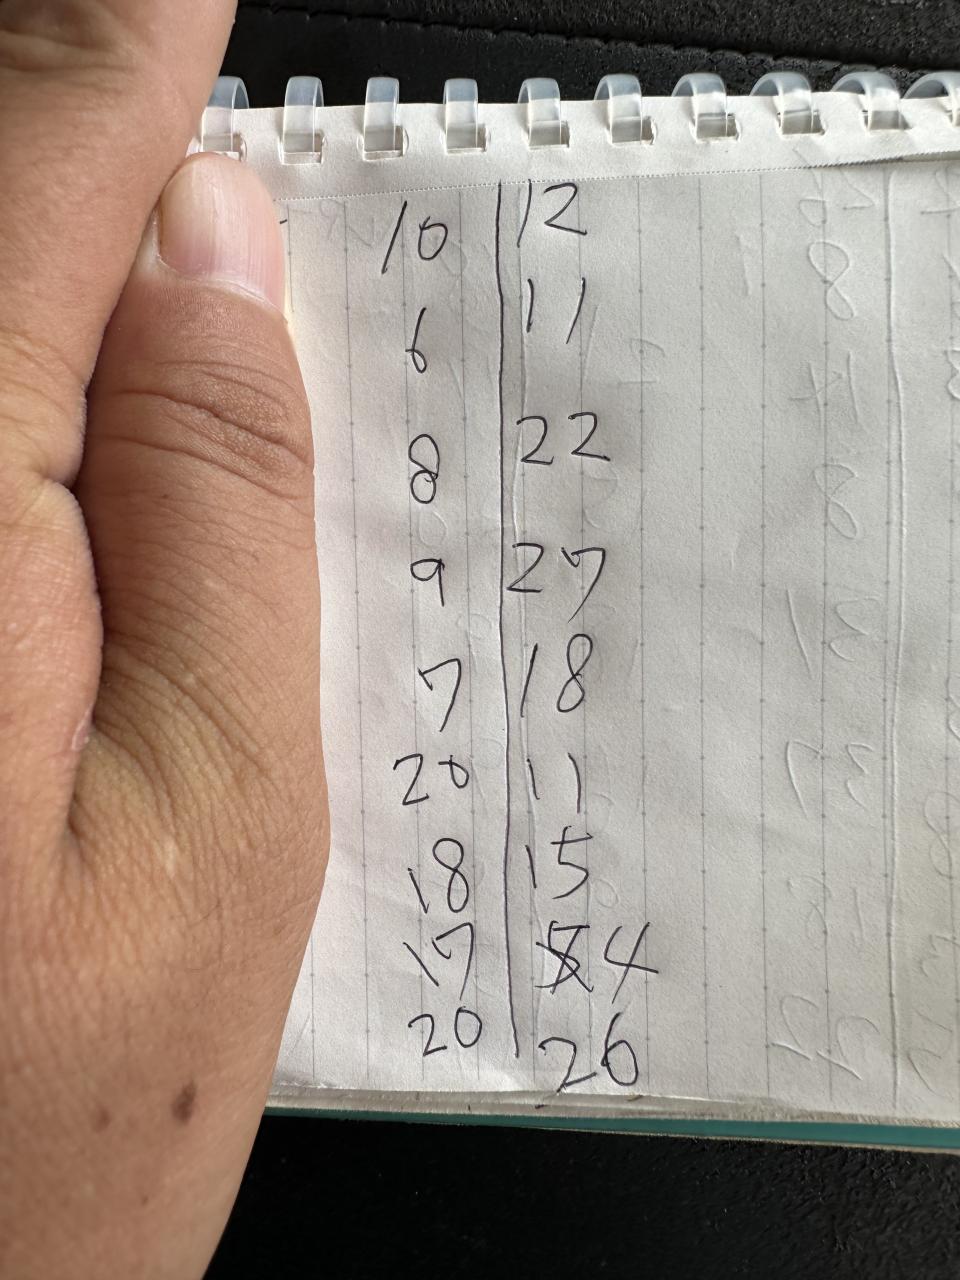 10 12
6 11
8 22
9 27
7 18
20 11
18 15
17 4
20 26